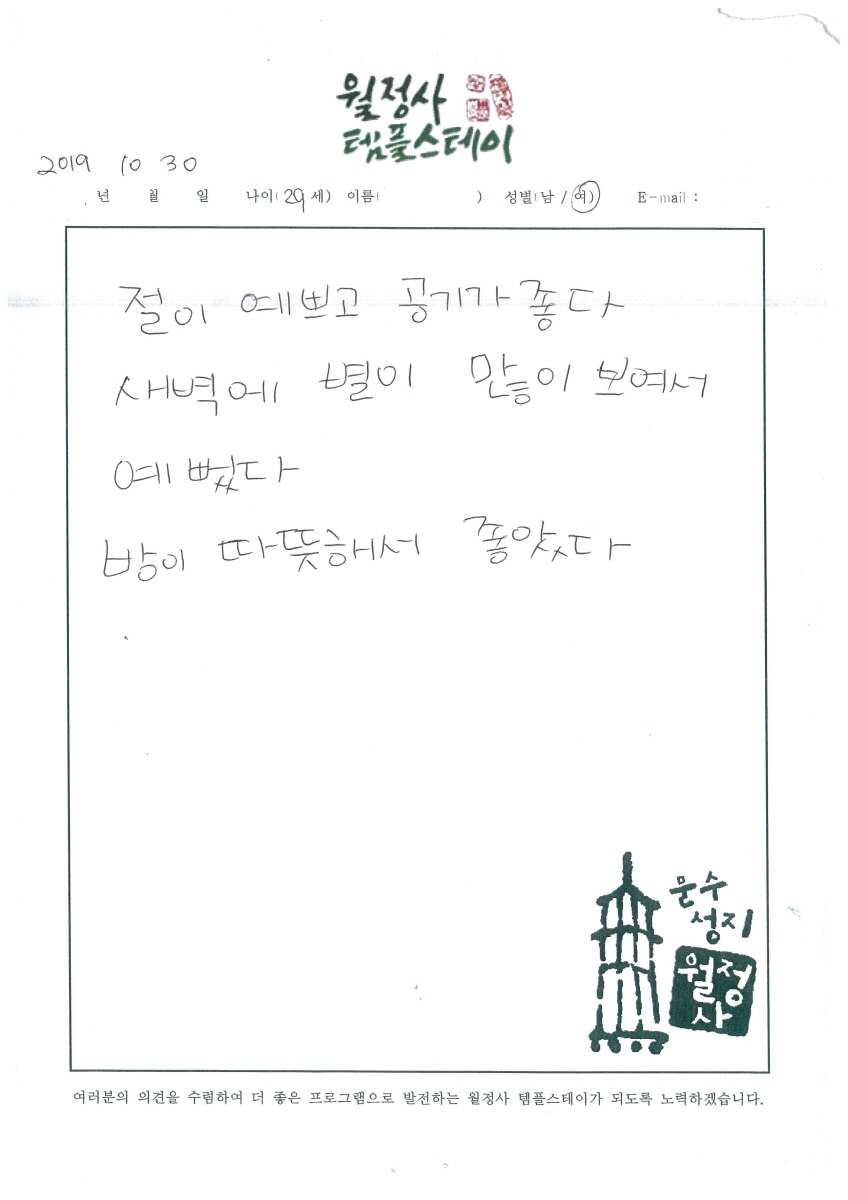 월정사
템플스테이
2019 10 30
년 월 일 나이(29세) 이름( ) 성별(남 / 여) E-mail :
절이 예쁘고 공기가 좋다
새벽에 별이 만능이 보여서
예뻤다
방이 따뜻해서 좋았다
문수
성지
월정
사
여러분의 의견을 수렴하여 더 좋은 프로그램으로 발전하는 월정사 템플스테이가 되도록 노력하겠습니다.